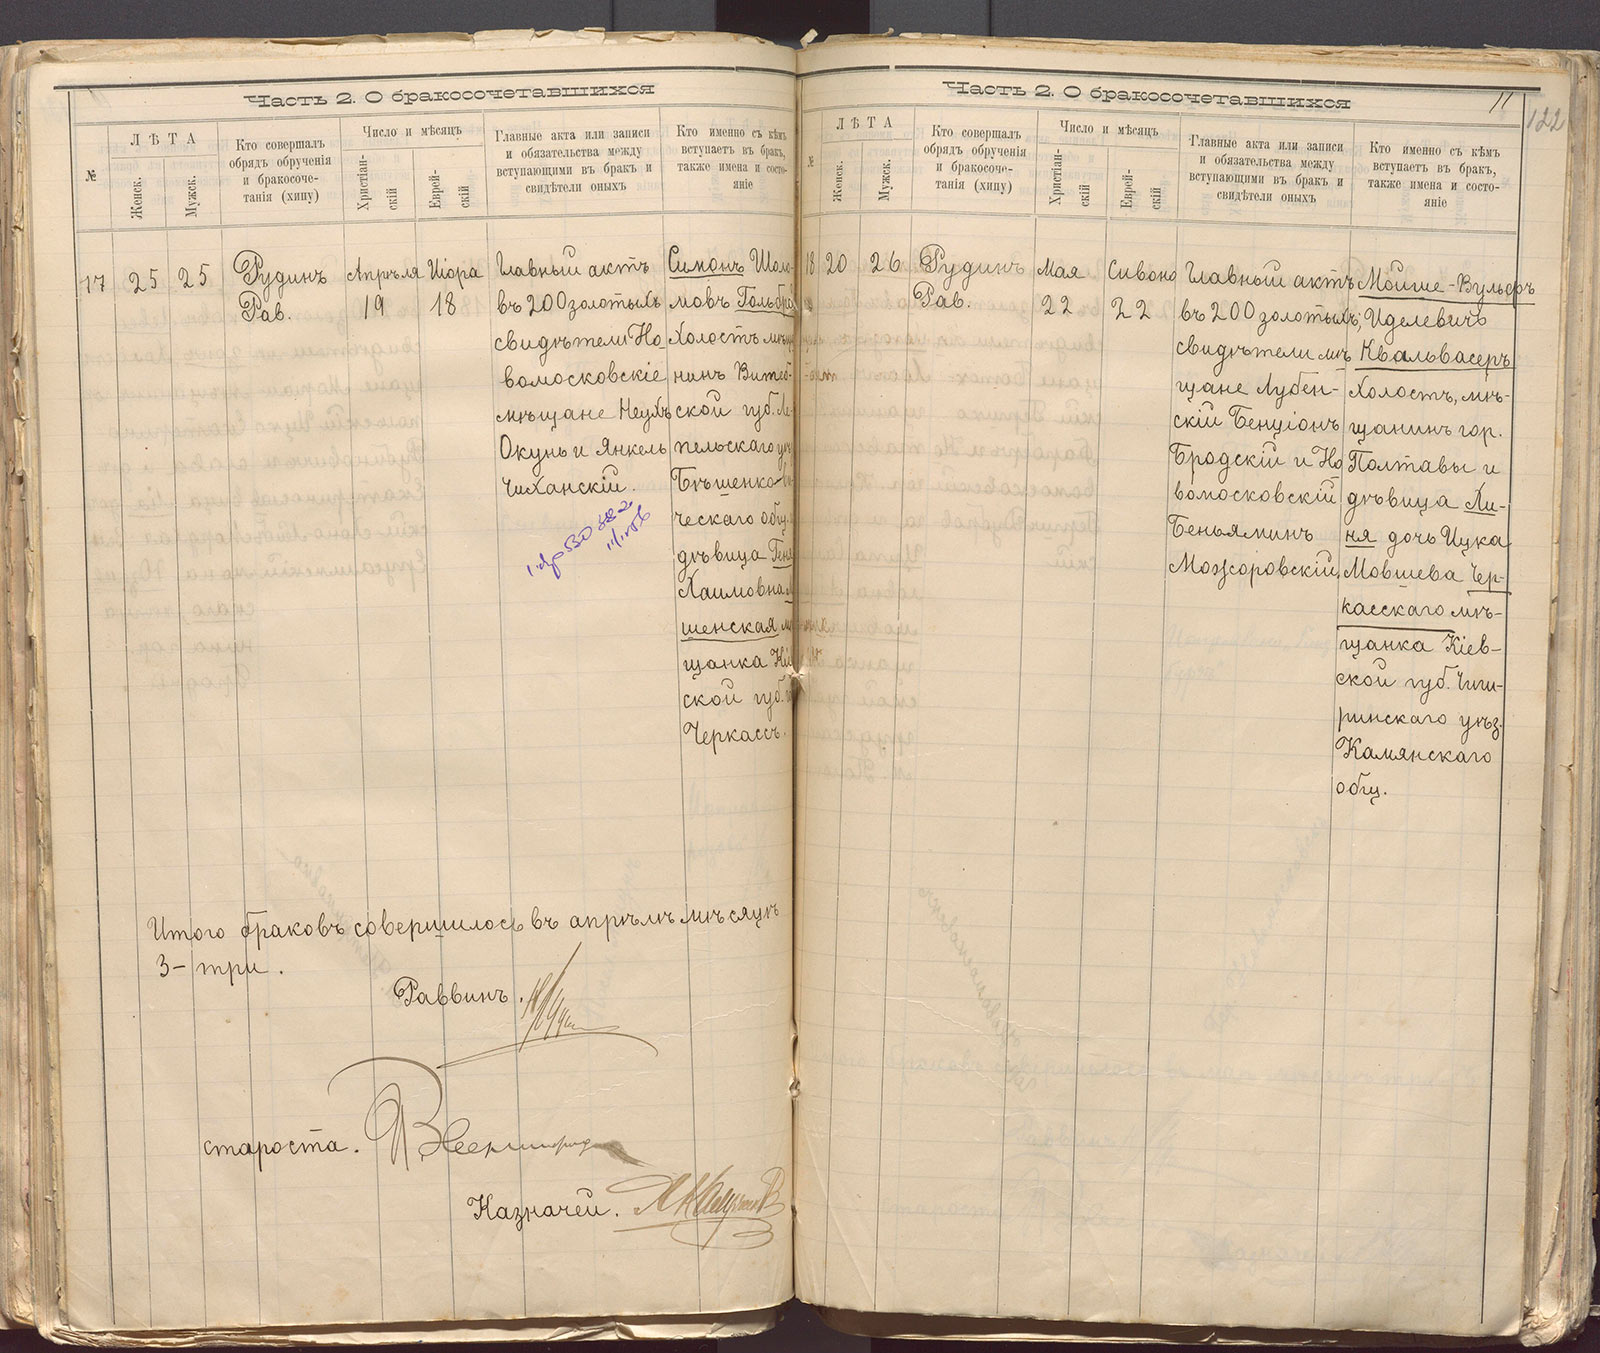 Часть 2. О бракосочетавшихся
№
ЛѢТА
Женск.
Мужск.
Кто совершалъ
обрядъ обрученія
и бракосоче-
танія (хипу)
Число и мѣсяцъ
Христіан-
скій
Еврей-
скій
Главные акта или записи
и обязательства между
вступающими въ бракъ и
свидѣтели оныхъ
Кто именно съ кѣмъ
вступаетъ въ бракъ,
также имена и состо-
яніе
17
25
25
Рудинъ
Рав.
Апрѣля
19
Иіора
18
Главный актъ
въ 200 золотыхъ
свидѣтели Но-
вомосковскіе
мѣщане Неухъ
Окунь и Янкель
Чиханскій.
Симонъ Шоло-
мовъ
Холостъ
нинъ Витеб-
ской губ. Ле-
пельскаго
Бѣшенко-
ческаго общ.
дѣвица
Хаимовна
шенская
щанка
ской губ.
Черкассъ.
Итого браковъ совершилось въ апрѣлѣ мѣсяцѣ
3 - три.
Раввинъ.
староста.
Казначей.
Часть 2. О бракосочетавшихся
11
122
№
ЛѢТА
Женск.
Мужск.
Кто совершалъ
обрядъ обрученія
и бракосоче-
танія (хипу)
Число и мѣсяцъ
Христіан-
скій
Еврей-
скій
Главные акта или записи
и обязательства между
вступающими въ бракъ и
свидѣтели оныхъ
Кто именно съ кѣмъ
вступаетъ въ бракъ,
также имена и состо-
яніе
18
20
26
Рудинъ
Рав.
Мая
22
Сивоно
22
Главный актъ
въ 200 золотыхъ;
свидѣтели мѣ-
щане Лубен-
скій Бенціонъ
Бродскій и Но
вомосковскій
Беньяминъ
Можоровскій.
Мойше-Вульфъ
Иделевичъ
Квальвасеръ
Холостъ, мѣ-
щанинъ гор.
Полтавы и
дѣвица Ли-
ня дочь Ицка
Мовшева Чер-
касскаго мѣ-
щанка Кіев-
ской губ. Чиги-
ринскаго уѣз.
Камянскаго
общ.